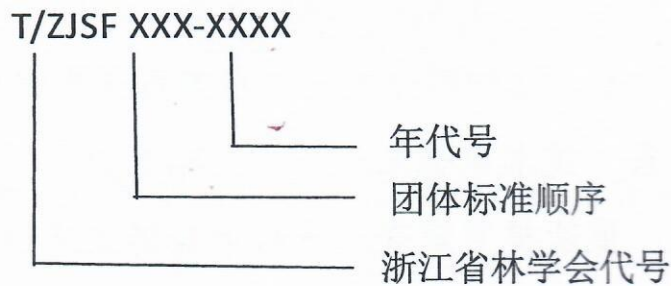 T/ZJSF XXX-XXXX
年代号
团体标准顺序
浙江省林学会代号